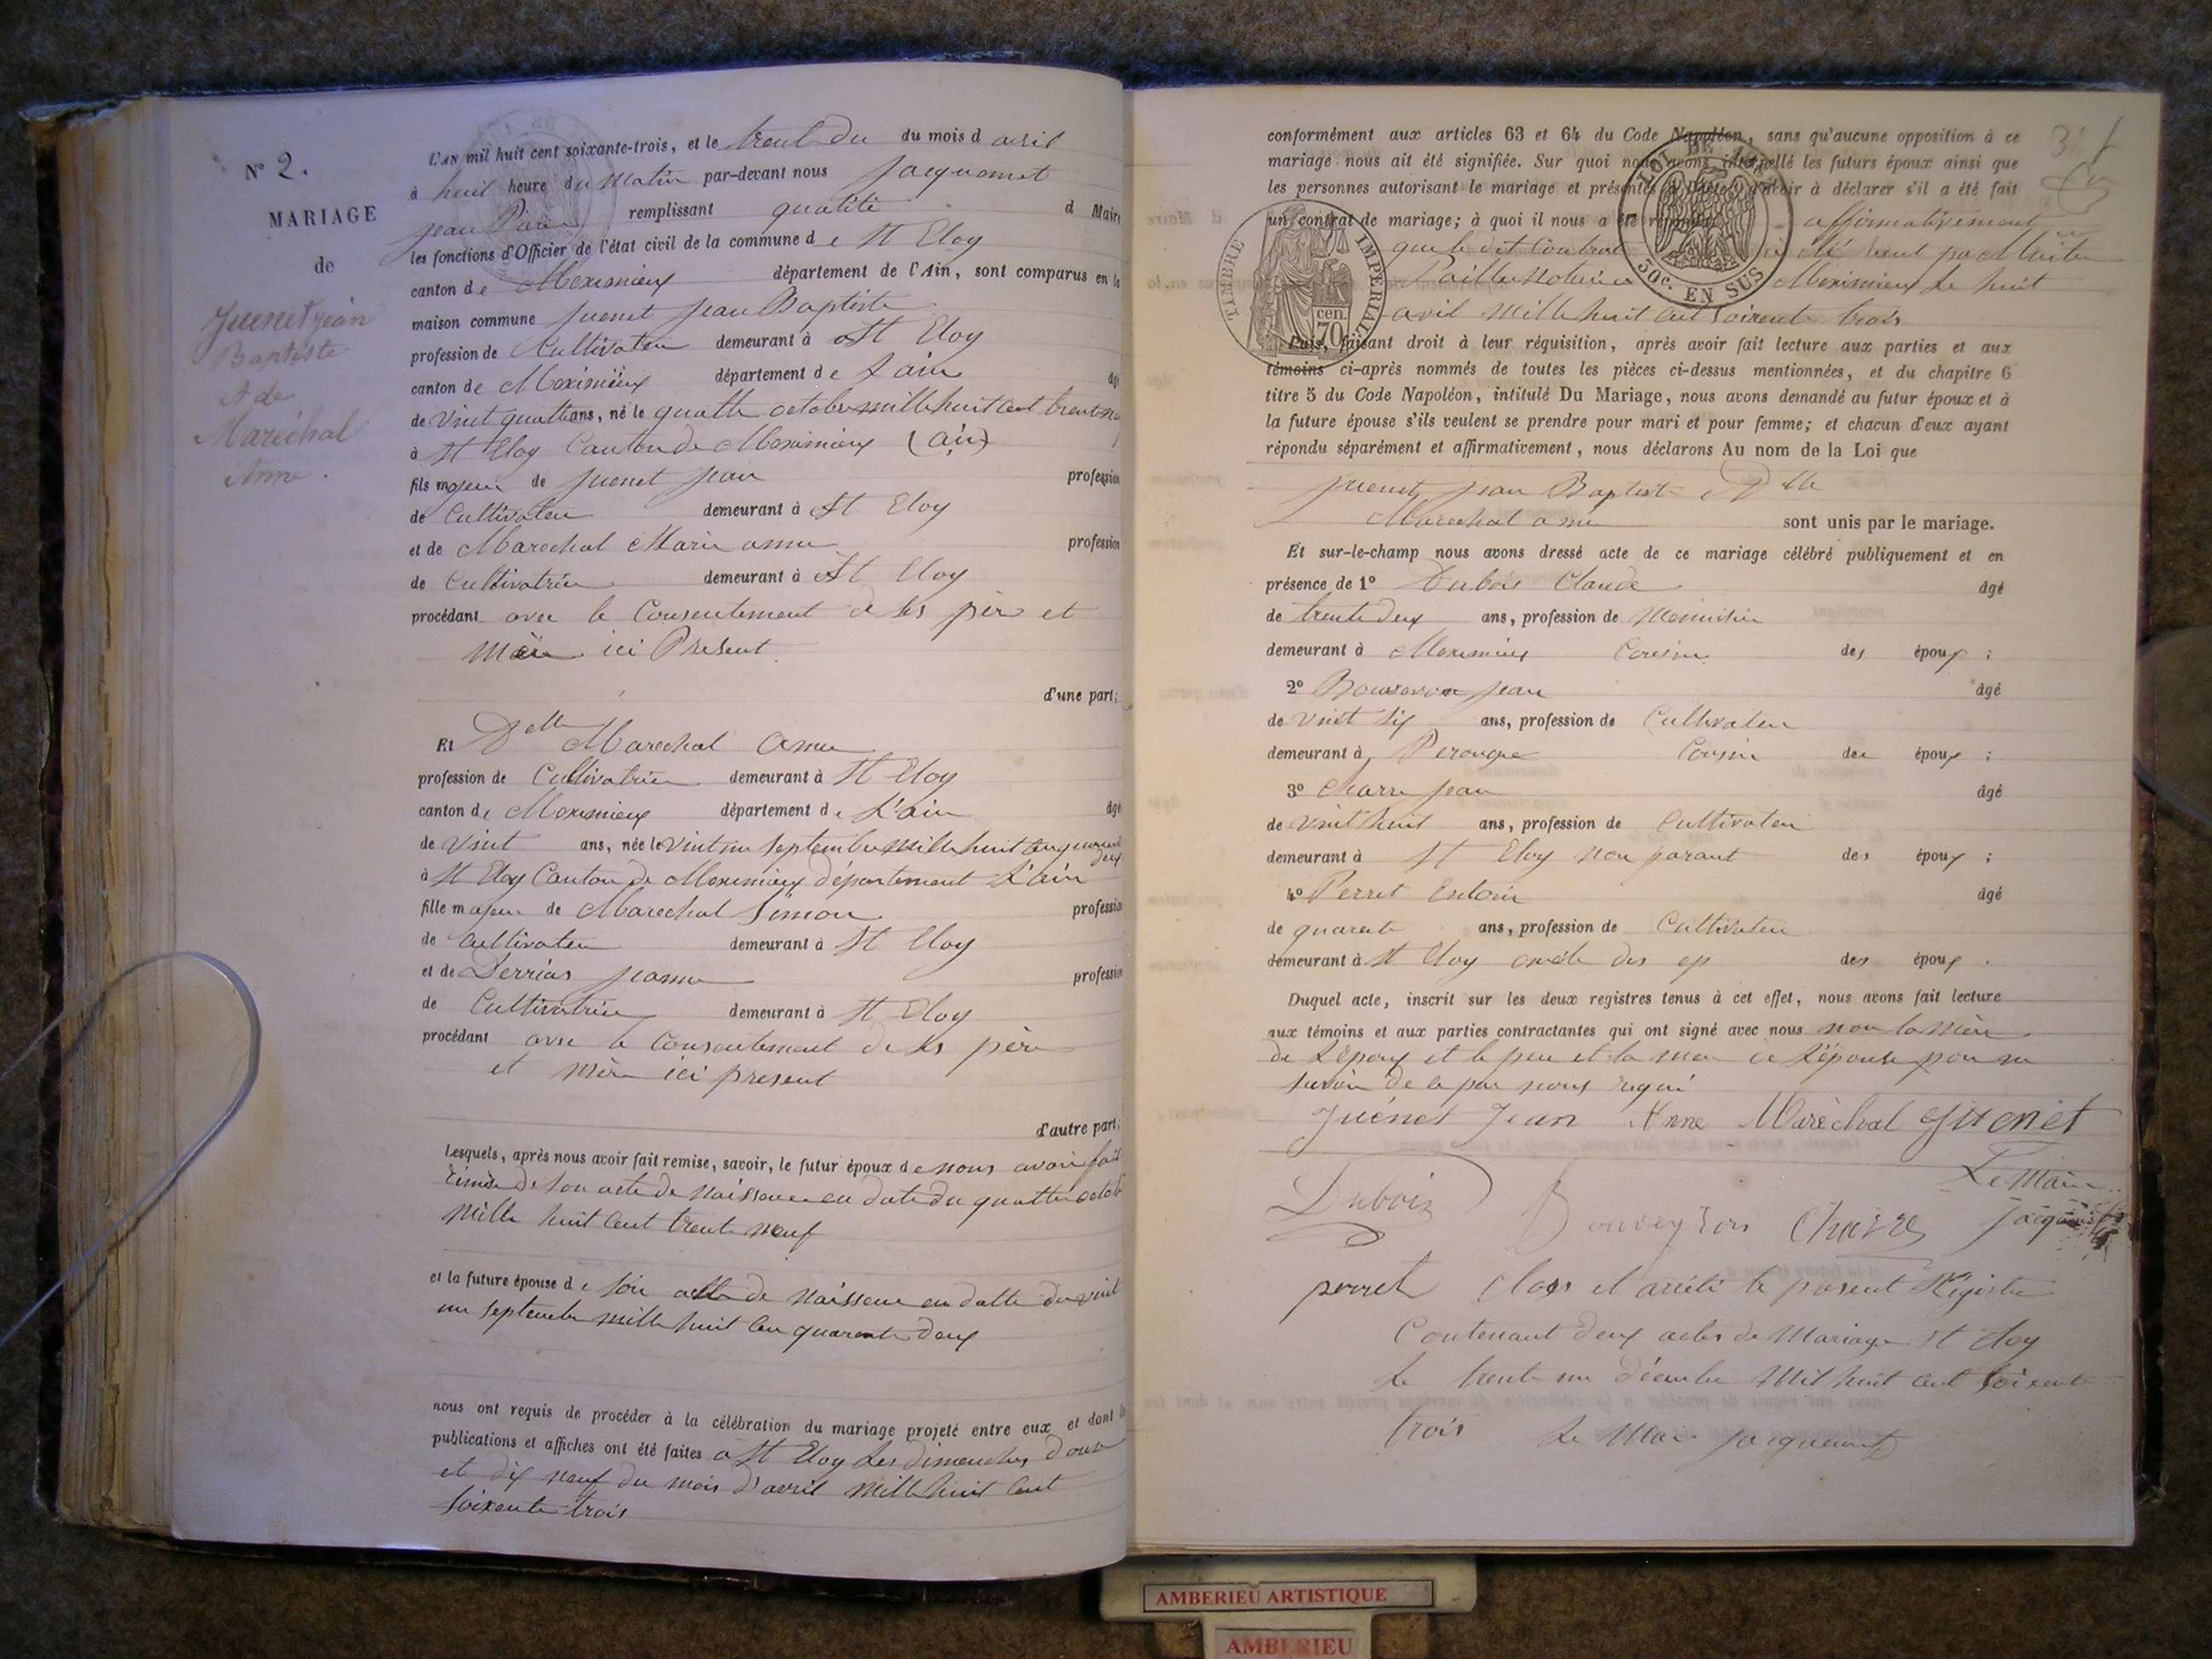 N° 2.
MARIAGE
de
Juenet jean
Baptiste
et de
Maréchal
Anne.
L'AN mil huit cent soixante-trois, et le trent du du mois d avril
à huit heure du Matin par-devant nous Jacquemet
jean Pierre remplissant qualité d Maire
les fonctions d'Officier de l'état civil de la commune d e St Eloy
canton de Meximieux département de l'Ain, sont comparus en la
maison commune Juenet Jean Baptiste
profession de Cultivateur demeurant à St Eloy
canton de Meximieux département de L'ain âgé
de vint quattre ans, né le quattre octobre mille huit cent trent neuf
à St Eloy Canton de Meximieux (ain)
fils majeur de Juenet jean profession
de Cultivateur demeurant à St Eloy
et de Marechal Marie anne profession
de Cultivatrice demeurant à St Eloy
procédant avec le Consentement de ses père et
mère ici Présent
d'une part;
Et Delle Marechal anne
profession de Cultivatrice demeurant à St Eloy
canton de Meximieux département de L'ain âgé
de vint ans, née le vint un septembre mille huit cen quarent deux
à St Eloy Canton de Meximieux département L'ain
fille majeur de Marechal Simon profession
de cultivateur demeurant à St Eloy
et de Derrias jeanne profession
de Cultivatrice demeurant à St Eloy
procédant avec le Consentement de ses père
et mère ici présent
d'autre part;
Lesquels, après nous avoir fait remise, savoir, le futur époux de nous avoir fait
remise de son acte de Naissance en date du quattre octobre
Mille huit Cent trent neuf
et la future épouse de son acte de Naissence en datte du vint
un septembre mille huit cen quarente deux
nous ont requis de procéder à la célébration du mariage projeté entre eux et dont les
publications et affiches ont été faites a St Eloy Les dimenches douze
et dix neuf du mois d'avril Mille huit Cent
soixente trois
conformément aux articles 63 et 64 du Code Napoléon, sans qu'aucune opposition à ce
mariage nous ait été signifiée. Sur quoi nous avons interpellé les futurs époux ainsi que
les personnes autorisant le mariage et présentes à l'acte, d'avoir à déclarer s'il a été fait
un contrat de mariage; à quoi il nous a été répondu affirmativement
que le dit Contrat été reçut par Maitre
Notaire Meximieux Le huit
avril Mille huit Cent soixente trois
TIMBRE IMPERIAL
cen. 70
LOI DE
50c. EN SUS
Puis, faisant droit à leur réquisition, après avoir fait lecture aux parties et aux
témoins ci-après nommés de toutes les pièces ci-dessus mentionnées, et du chapitre 6
titre 5 du Code Napoléon, intitulé Du Mariage, nous avons demandé au futur époux et à
la future épouse s'ils veulent se prendre pour mari et pour femme; et chacun d'eux ayant
répondu séparément et affirmativement, nous déclarons Au nom de la Loi que
Juenet Jean Baptiste et Delle
Marechal anne sont unis par le mariage.
Et sur-le-champ nous avons dressé acte de ce mariage célébré publiquement et en
présence de 1° Dubois Claude âgé
de trente deux ans, profession de Menuisier
demeurant à Meximieux Cousin des époux ;
2° Bouveron jean âgé
de vint six ans, profession de Cultivateur
demeurant à Perouge Cousin des époux ;
3° Charre jean âgé
de vint huit ans, profession de Cultivateur
demeurant à St Eloy non parant des époux ;
4° Perret Entoine âgé
de quarente ans, profession de Cultivateur
demeurant à St Eloy des ep des époux .
Duquel acte, inscrit sur les deux registres tenus à cet effet, nous avons fait lecture
aux témoins et aux parties contractantes qui ont signé avec nous non la mère
de L'époux et le père et la mère de L'épouse pour ne
savoir de ce par nous requi
Juénet Jean Anne Maréchal Juenet
Le Maire
Dubois Bouveyron Charre Jacquemet
perret Clos et arrété le présent Régistre
Contenant deux actes de Mariage St Eloy
Le trente un décembre Mil huit cent soixente
trois Le Maire Jacquemet
AMBERIEU ARTISTIQUE
AMBERIEU